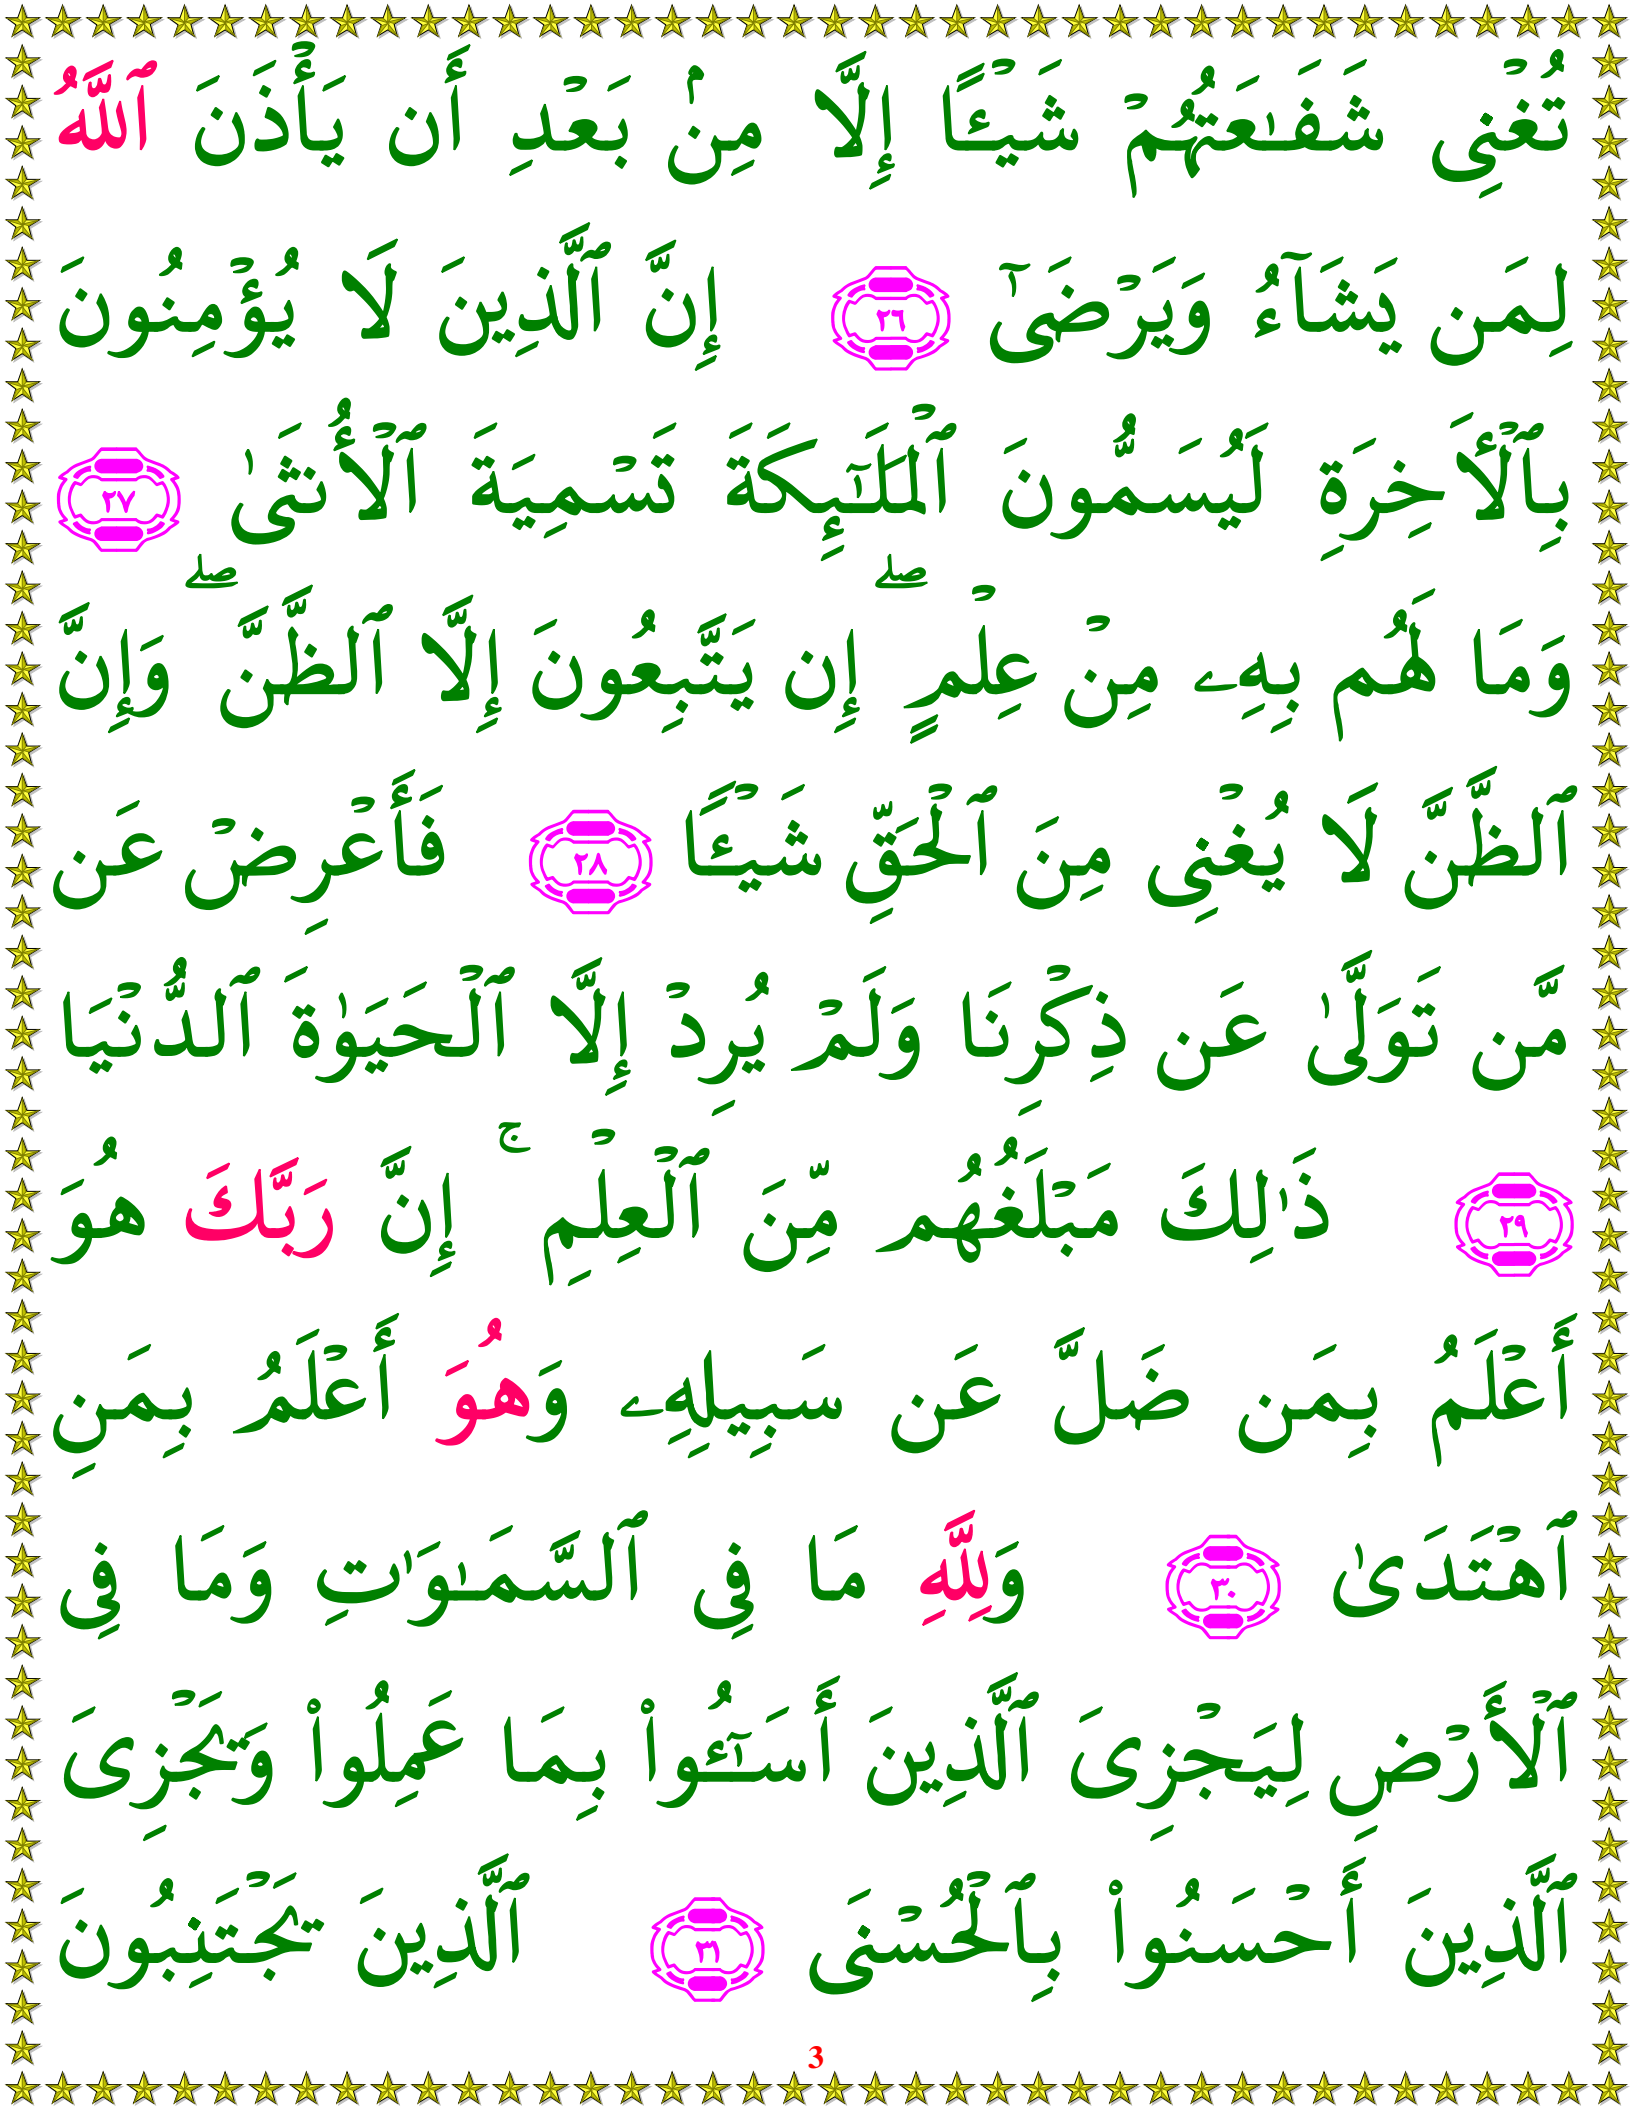 تُغْنِى شَفَـٰعَتُهُمْ شَيْـًٔا إِلَّا مِنۢ بَعْدِ أَن يَأْذَنَ ٱللَّهُ
لِمَن يَشَآءُ وَيَرْضَىٰٓ ٢٦ إِنَّ ٱلَّذِينَ لَا يُؤْمِنُونَ
بِٱلْـَٔاخِرَةِ لَيُسَمُّونَ ٱلْمَلَـٰٓئِكَةَ تَسْمِيَةَ ٱلْأُنثَىٰ ٢٧
وَمَا لَهُم بِهِۦ مِنْ عِلْمٍ ۖ إِن يَتَّبِعُونَ إِلَّا ٱلظَّنَّ ۖ وَإِنَّ
ٱلظَّنَّ لَا يُغْنِى مِنَ ٱلْحَقِّ شَيْـًٔا ٢٨ فَأَعْرِضْ عَن
مَّن تَوَلَّىٰ عَن ذِكْرِنَا وَلَمْ يُرِدْ إِلَّا ٱلْحَيَوٰةَ ٱلدُّنْيَا
٢٩ ذَٰلِكَ مَبْلَغُهُم مِّنَ ٱلْعِلْمِ ۚ إِنَّ رَبَّكَ هُوَ
أَعْلَمُ بِمَن ضَلَّ عَن سَبِيلِهِۦ وَهُوَ أَعْلَمُ بِمَنِ
ٱهْتَدَىٰ ٣٠ وَلِلَّهِ مَا فِى ٱلسَّمَـٰوَٰتِ وَمَا فِى
ٱلْأَرْضِ لِيَجْزِىَ ٱلَّذِينَ أَسَـٰٓـُٔوا۟ بِمَا عَمِلُوا۟ وَيَجْزِىَ
ٱلَّذِينَ أَحْسَنُوا۟ بِٱلْحُسْنَى ٣١ ٱلَّذِينَ يَجْتَنِبُونَ
3